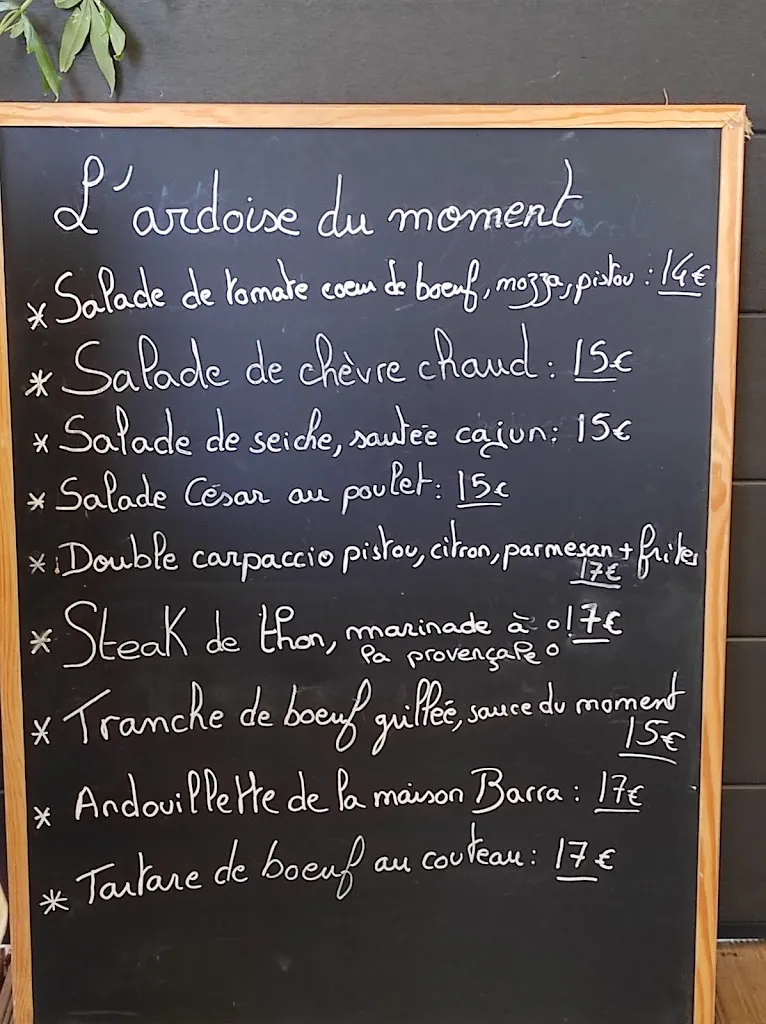 L'ardoise du moment
* Salade de tomate coeur de boeuf, mozza, pistou : 14€
* Salade de chèvre chaud : 15€
* Salade de seiche, sautée cajun : 15€
* Salade César au poulet : 15€
* Double carpaccio pistou, citron, parmesan + frites
17€
* Steak de thon, marinade à : 17€
la provençale
* Tranche de boeuf grillée, sauce du moment
15€
* Andouillette de la maison Barra : 17€
* Tartare de boeuf au couteau : 17€